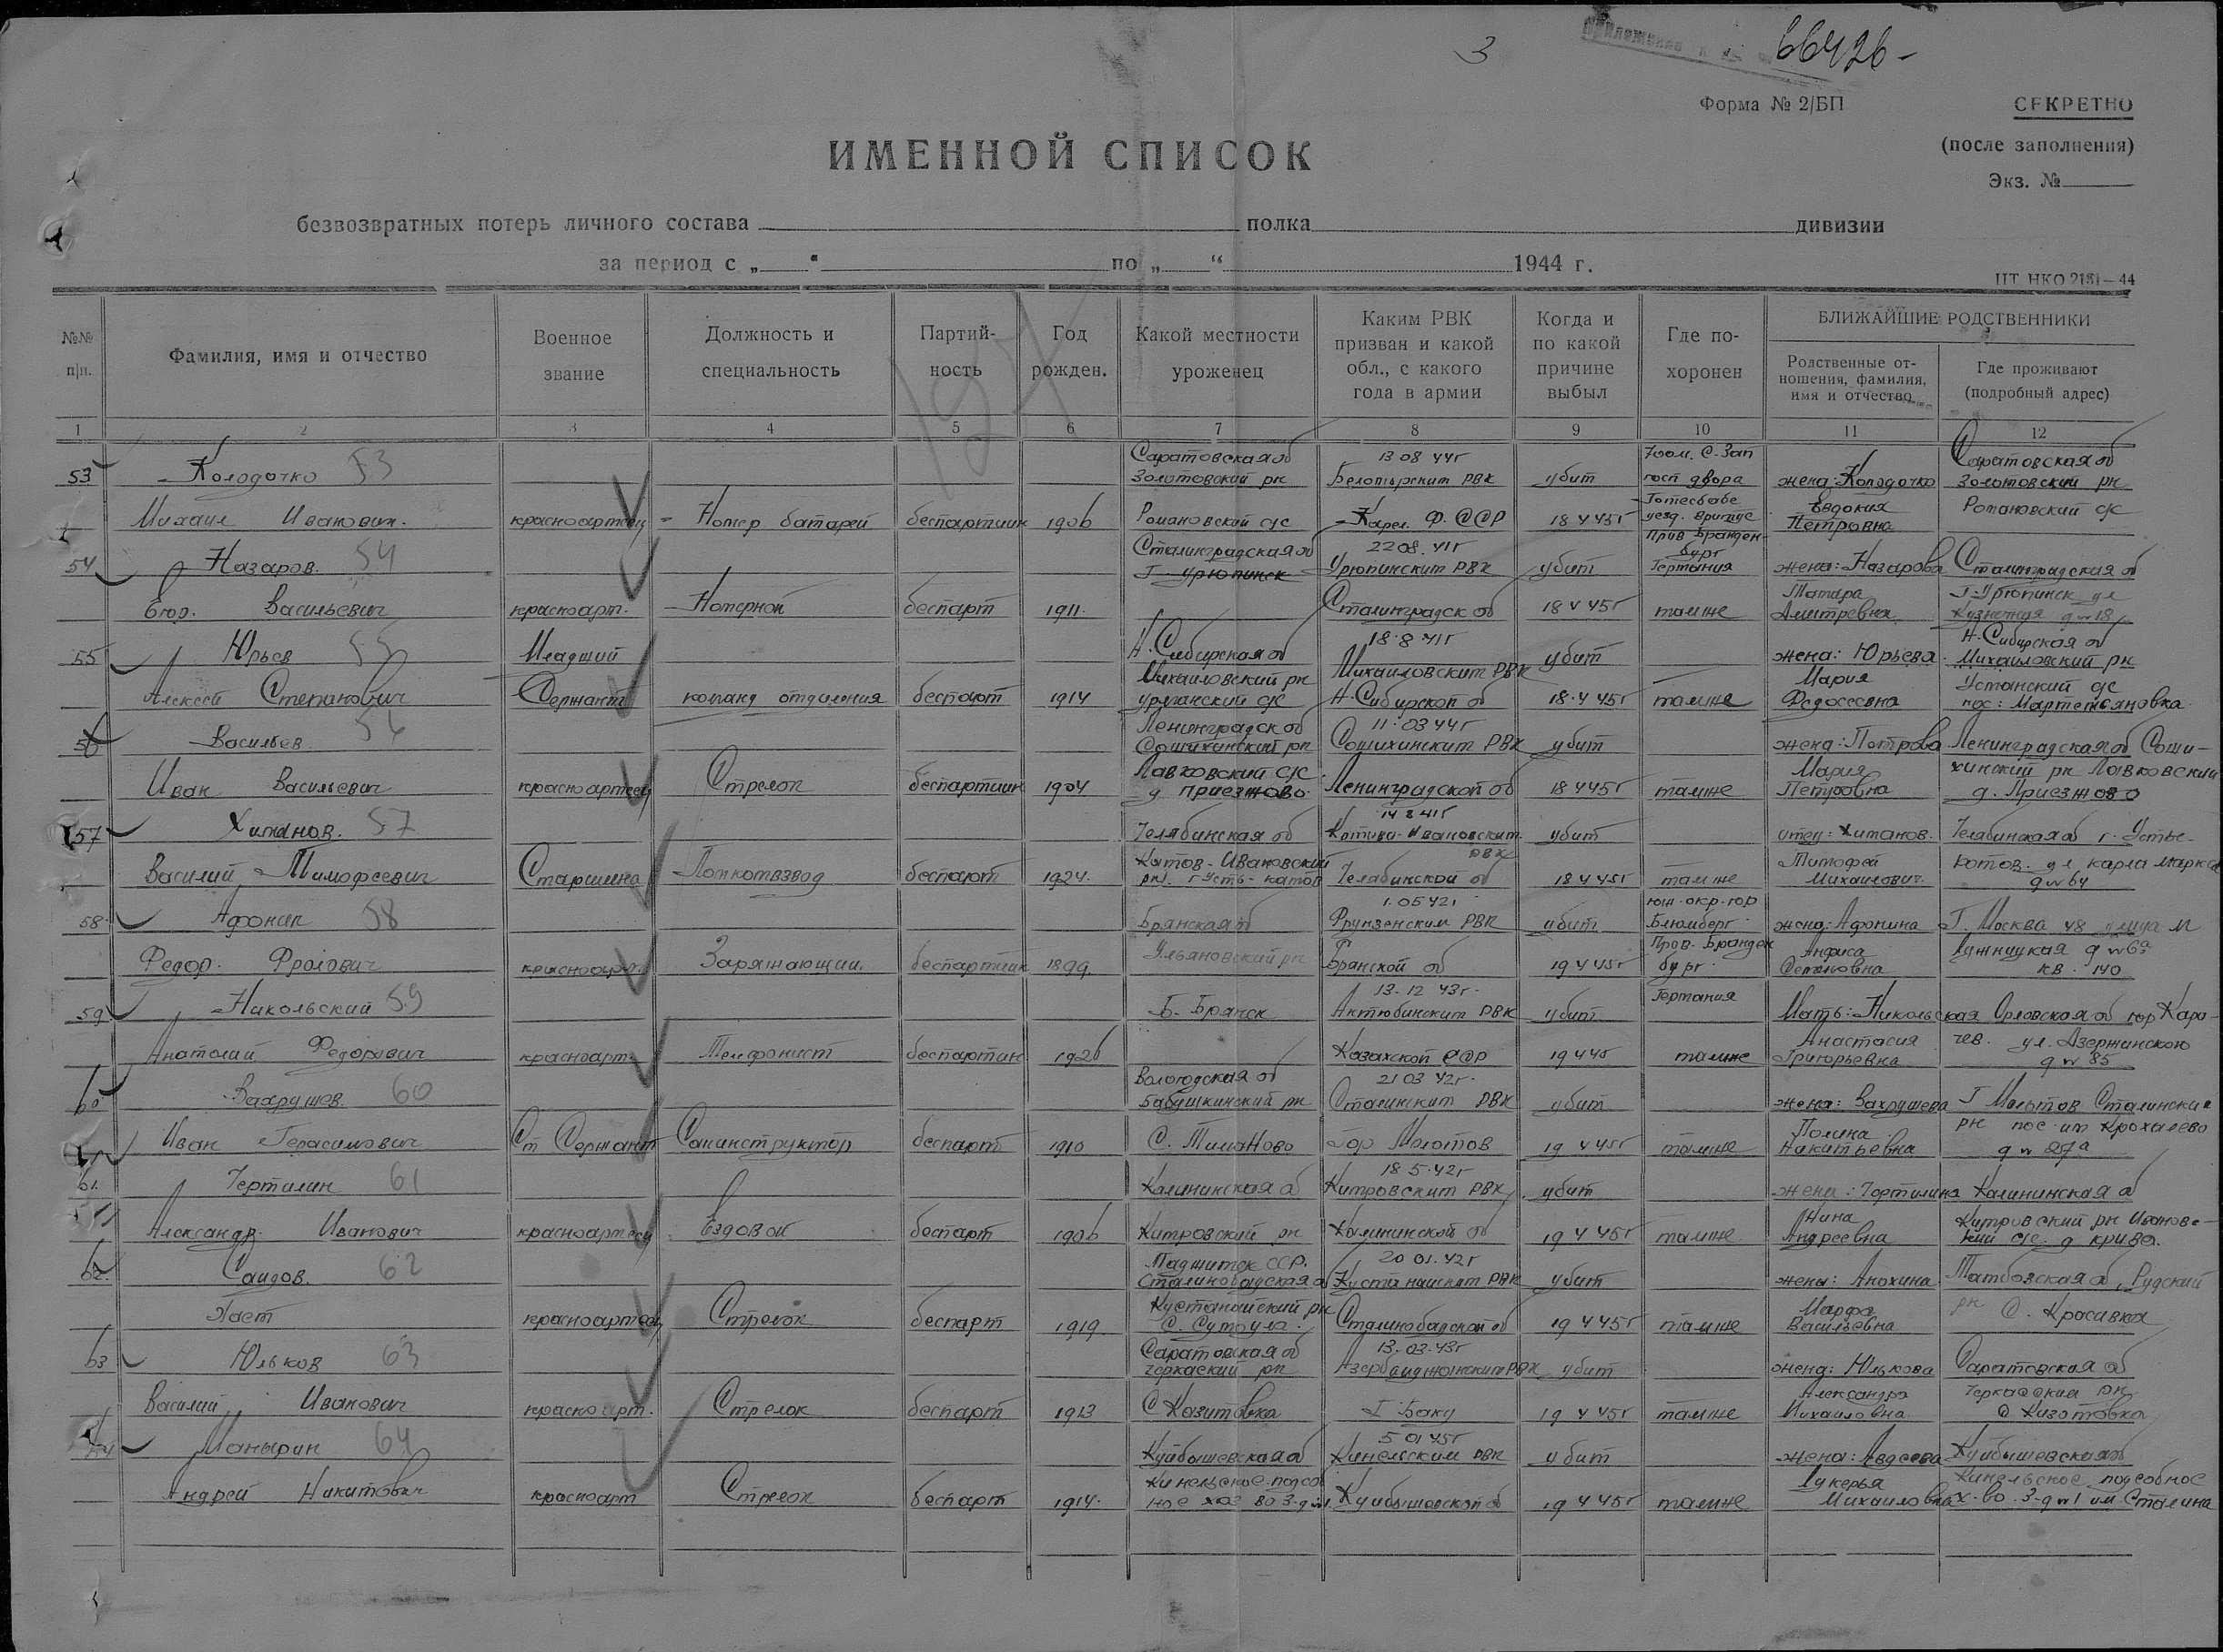 3
66426-
Форма № 2/БП
СЕКРЕТНО
(после заполнения)
Экз. №
ИМЕННОЙ СПИСОК
безвозвратных потерь личного состава полка дивизии
за период с „ “ по „ “ 1944 г.
ЦТ НКО 2151—44
№№ п|п.
Фамилия, имя и отчество
Военное звание
Должность и специальность
Партийность
Год рожден.
Какой местности уроженец
Каким РВК призван и какой обл., с какого года в армии
Когда и по какой причине выбыл
Где похоронен
БЛИЖАЙШИЕ РОДСТВЕННИКИ
Родственные отношения, фамилия, имя и отчество
Где проживают (подробный адрес)
1 2 3 4 5 6 7 8 9 10 11 12
Саратовская об 13 08 44г 700м. С-Зап Саратовская об
53 Колодочко 53 Золотовский рн РВК убит госп двора жена: Колодочко Золотовский рн
Михаил Иванович красноармеец Номер батареи беспартийн 1906 Романовский с/с Карел. Ф. ССР 18 4 45г Евдокия Петровна Романовский с/с
Прив Бранденбург Германия
Сталинградская об 22 08. 41г
54 Назаров. 54 г. Урюпинск Урюпинским РВК убит жена: Назарова Сталинградская об
Егор. Васильевич красноарт. беспарт 1911. Сталинградск об 18 4 45г там же Дмитревна г. Урюпинск ул
д №18
18.8 41г Н-Сибирская об
55 Юрьев 55 Младший Н-Сибирская об убит жена: Юрьева Михайловский рн
Алексей Степанович Сержант команд отделения беспарт 1914 Михайловский рн с/с Михайловским РВК Н-Сибирской об 18.4 45г там же Мария Федосеевна
Ленинградск об 11.03 44г
56 Васильев 56 Сошихинский рн Сошихинским РВК убит жена: Петрова Ленинградская об Соши-
Иван Васильевич красноармеец Стрелок беспартийн 1904 Лавковский с/с д Приезжово Ленинградской об 18 4 45г там же Мария Петровна хинский рн Лавковский д. Приезжово
14 8 41г
57 Химанов. 57 Челябинская об убит отец: Химанов. Челябинская об г. Усть-
Василий Тимофеевич Старшина Помкомвзвод беспарт 1924. Катов-Ивановский рн. г Усть-катов РВК Челябинской об 18 4 45г там же Тимофей Михайлович катов. ул карла Маркса д №64
1.05 42г
58. Афонин 58 Брянская об Фрунзенским РВК убит Блюмберг жена: Афонина Г. Москва 48 улица М
Федор. Фролович красноарт. Заряжающий. беспартийн 1899. Ульяновский рн Брянской об 19 4 45г Пров. Бранденбург Анфиса Степановна кв. 140
13-12 43г. Германия
59. Никольский 59 Б-Брянск Актюбинским РВК убит Мать: Никольская Орловская об гор Кара-
Анатолий Федорович красноарт. Телефонист беспартийн 1926 Казахской ССР 19 4 45 там же Анастасия Григорьевна чев. ул. Дзержинского д № 85
Вологодская об 21 03 42г.
60 Вахрушев. 60 Бабушкинский рн Сталинским РВК убит жена: Вахрушева Г Молотов Сталинский
Иван Герасимович Ст Сержант Санинструктор беспарт 1910 гор Молотов 19 4 45г там же Полина Никитьевна рн пос им Крохалево д № 27а
18 5.42г
61. Чертилин 61 Калининская об РВК убит жена: Чертилина Калининская об
Александр. Иванович красноармеец Ездовой беспарт 1906 Калининской об 19 4 45г там же Нина Андреевна
Таджитск ССР. 20 01.42г
62. Саидов. 62 Сталинобадская об РВК убит жена: Анохина
красноармеец Стрелок беспарт 1919. Сталинобадской об 19 4 45г там же Марфа Васильевна рн С. Красивка
Саратовская об 13.03.43г
63 Юльков 63 черкаский рн РВК убит жена: Юлькова Саратовская об
Василий Иванович красноарт. Стрелок беспарт 1913 Г Баку 19 4 45г там же Александра Михайловна Черкасский рн
5 01 45г
64 Манырин 64 Куйбышевская об Кинельским РВК убит жена: Авдеева Куйбышевская об
Андрей Никитович красноарт Стрелок беспарт 1914. Кинельское подсобное хоз во 3-д №1 Куйбышевской об 19 4 45г там же Лукерья Михайловна Кинельское подсобное х-во 3-д №1 им Сталина